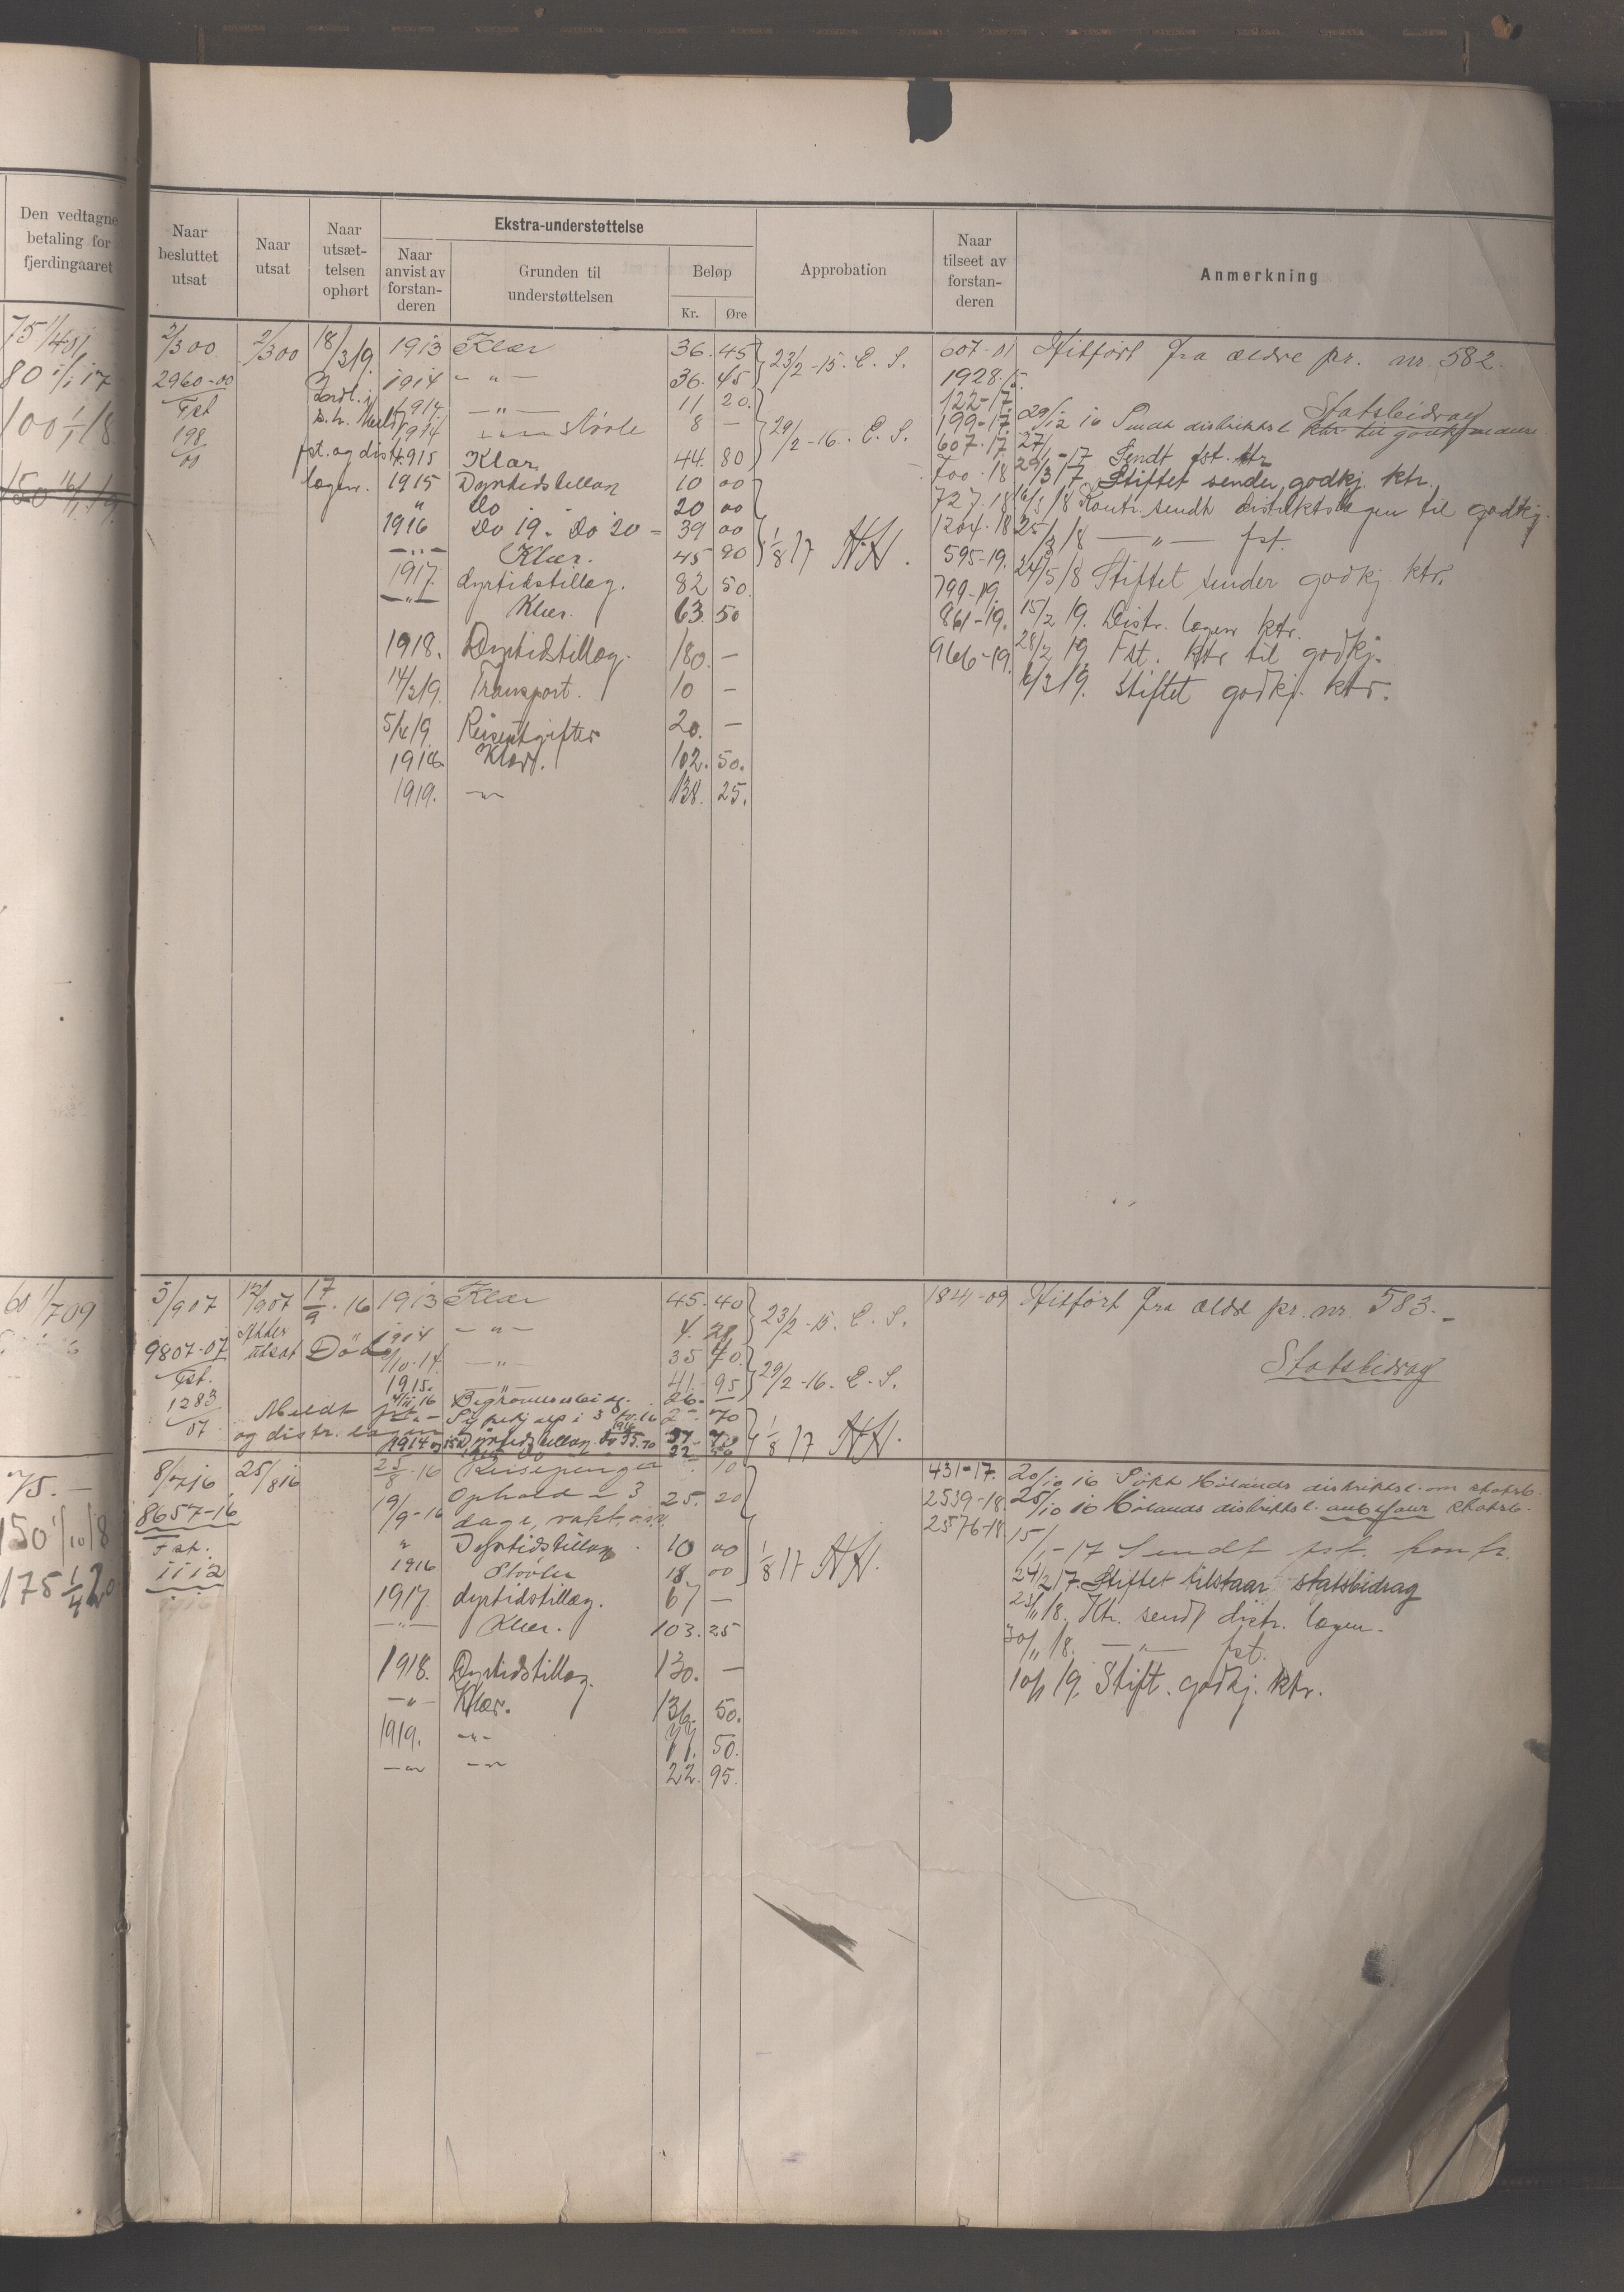 Den vedtagne
betaling for
fjerdingaaret
Naar
besluttet
utsat
Naar
utsat
Naar
utsæt-
telsen
ophørt
Ekstra-understøttelse
Naar
anvist av
forstan-
deren
Grunden til
understøttelsen
Beløp
Kr. Øre
Approbation
Naar
tilseet av
forstan-
deren
Anmerkning
75 1/4 01
80 1/1 17
100 1/1 18
150 16/1 19
2/3 00
2960-00
Fst
198
00
2/3 00
18/3 19.
fst. og distr.
lægen.
1913 Klær 36. 45
1914 - " - 36. 45
1914. - " - 11 20.
1914 støvle 8 -
1915 Klær 44. 80
1915 Dyrtidstillæg 10 00
" Do 20 00
1916 Do 19. Do 20 = 39 00
- " - Klær. 45 90
1917. dyrtidstillæg. 82 50.
- " - Klær. 63. 50
1918. Dyrtidstillæg. 180. -
14/3 19. Transport. 10 -
5/4 19. Reiseutgifter 20. -
1918. Klær. 102. 50.
1919. - " - 138. 25.
23/2 -15. E. S.
29/2 -16. E. S.
1/8 17 HH.
607-01
1928.15.
122-17.
199-17.
607.17.
700.18
727.18
1204.18
595-19.
799-19.
861-19.
966-19.
Hitført fra ældre pr. nr. 582.
Statsbidrag
29/12 16 Sendt distriktsl.
27/1 -17 Sendt fst. ktr
29/3 17 Stiftet sender godkj. ktr.
16/1 18 Kontr. sendt distriktslægen til godkj.
25/2 18 - " - fst.
24/5 18 Stiftet sender godkj. ktr.
15/2 19. Distr. lægen ktr.
28/2 19. Fst. ktr til godkj.
6/3 19. Stiftet godkj. ktr.
60 1/7 09
5/9 07
9807-07
Fst.
1283
07
12/9 07
Atter
utsat
17/9.16
Død
Meldt fst.
og distr. lægen
1913 Klær 45. 40
1914 - " - 4. 28
1/10.14. - " - 35 70.
1915. - " - 41. 95
Begravelsesbidr. 26. -
23/2 -15. E. S.
29/2 -16. E. S.
1/8 17 HH.
1821-09
Hitført fra ældre pr. nr. 583.-
Statsbidrag
75. -
150 1/10 18
175 1/4 20
8/7 16
8657-16
Fst.
1112
25/8 16
25/8.16 Reisepenger
19/9-16 Ophold i 3 25. 20
dage,
" Dyrtidstillæg 10 00
1916 Støvler 18 00
1917. dyrtidstillæg. 67 -
- " - Klær. 103. 25
1918. Dyrtidstillæg. 130. -
- " - Klær. 136. 50.
1919. - " - 77. 50.
- " - - " - 22. 95.
1/8 17 HH.
431-17.
2539-18.
2576-18
20/10 16 Søkt Hølands distriktsl. om statsb.
25/10 16 Hølands distriktsl. anbefaler statsb.
15/1 -17 Sendt fst. kontr.
24/2 17. Stiftet tilstaar statsbidrag
23/11 18. Ktr. sendt distr. lægen.
30/11 18. - " - fst.
10/1 19. Stift. godkj. ktr.